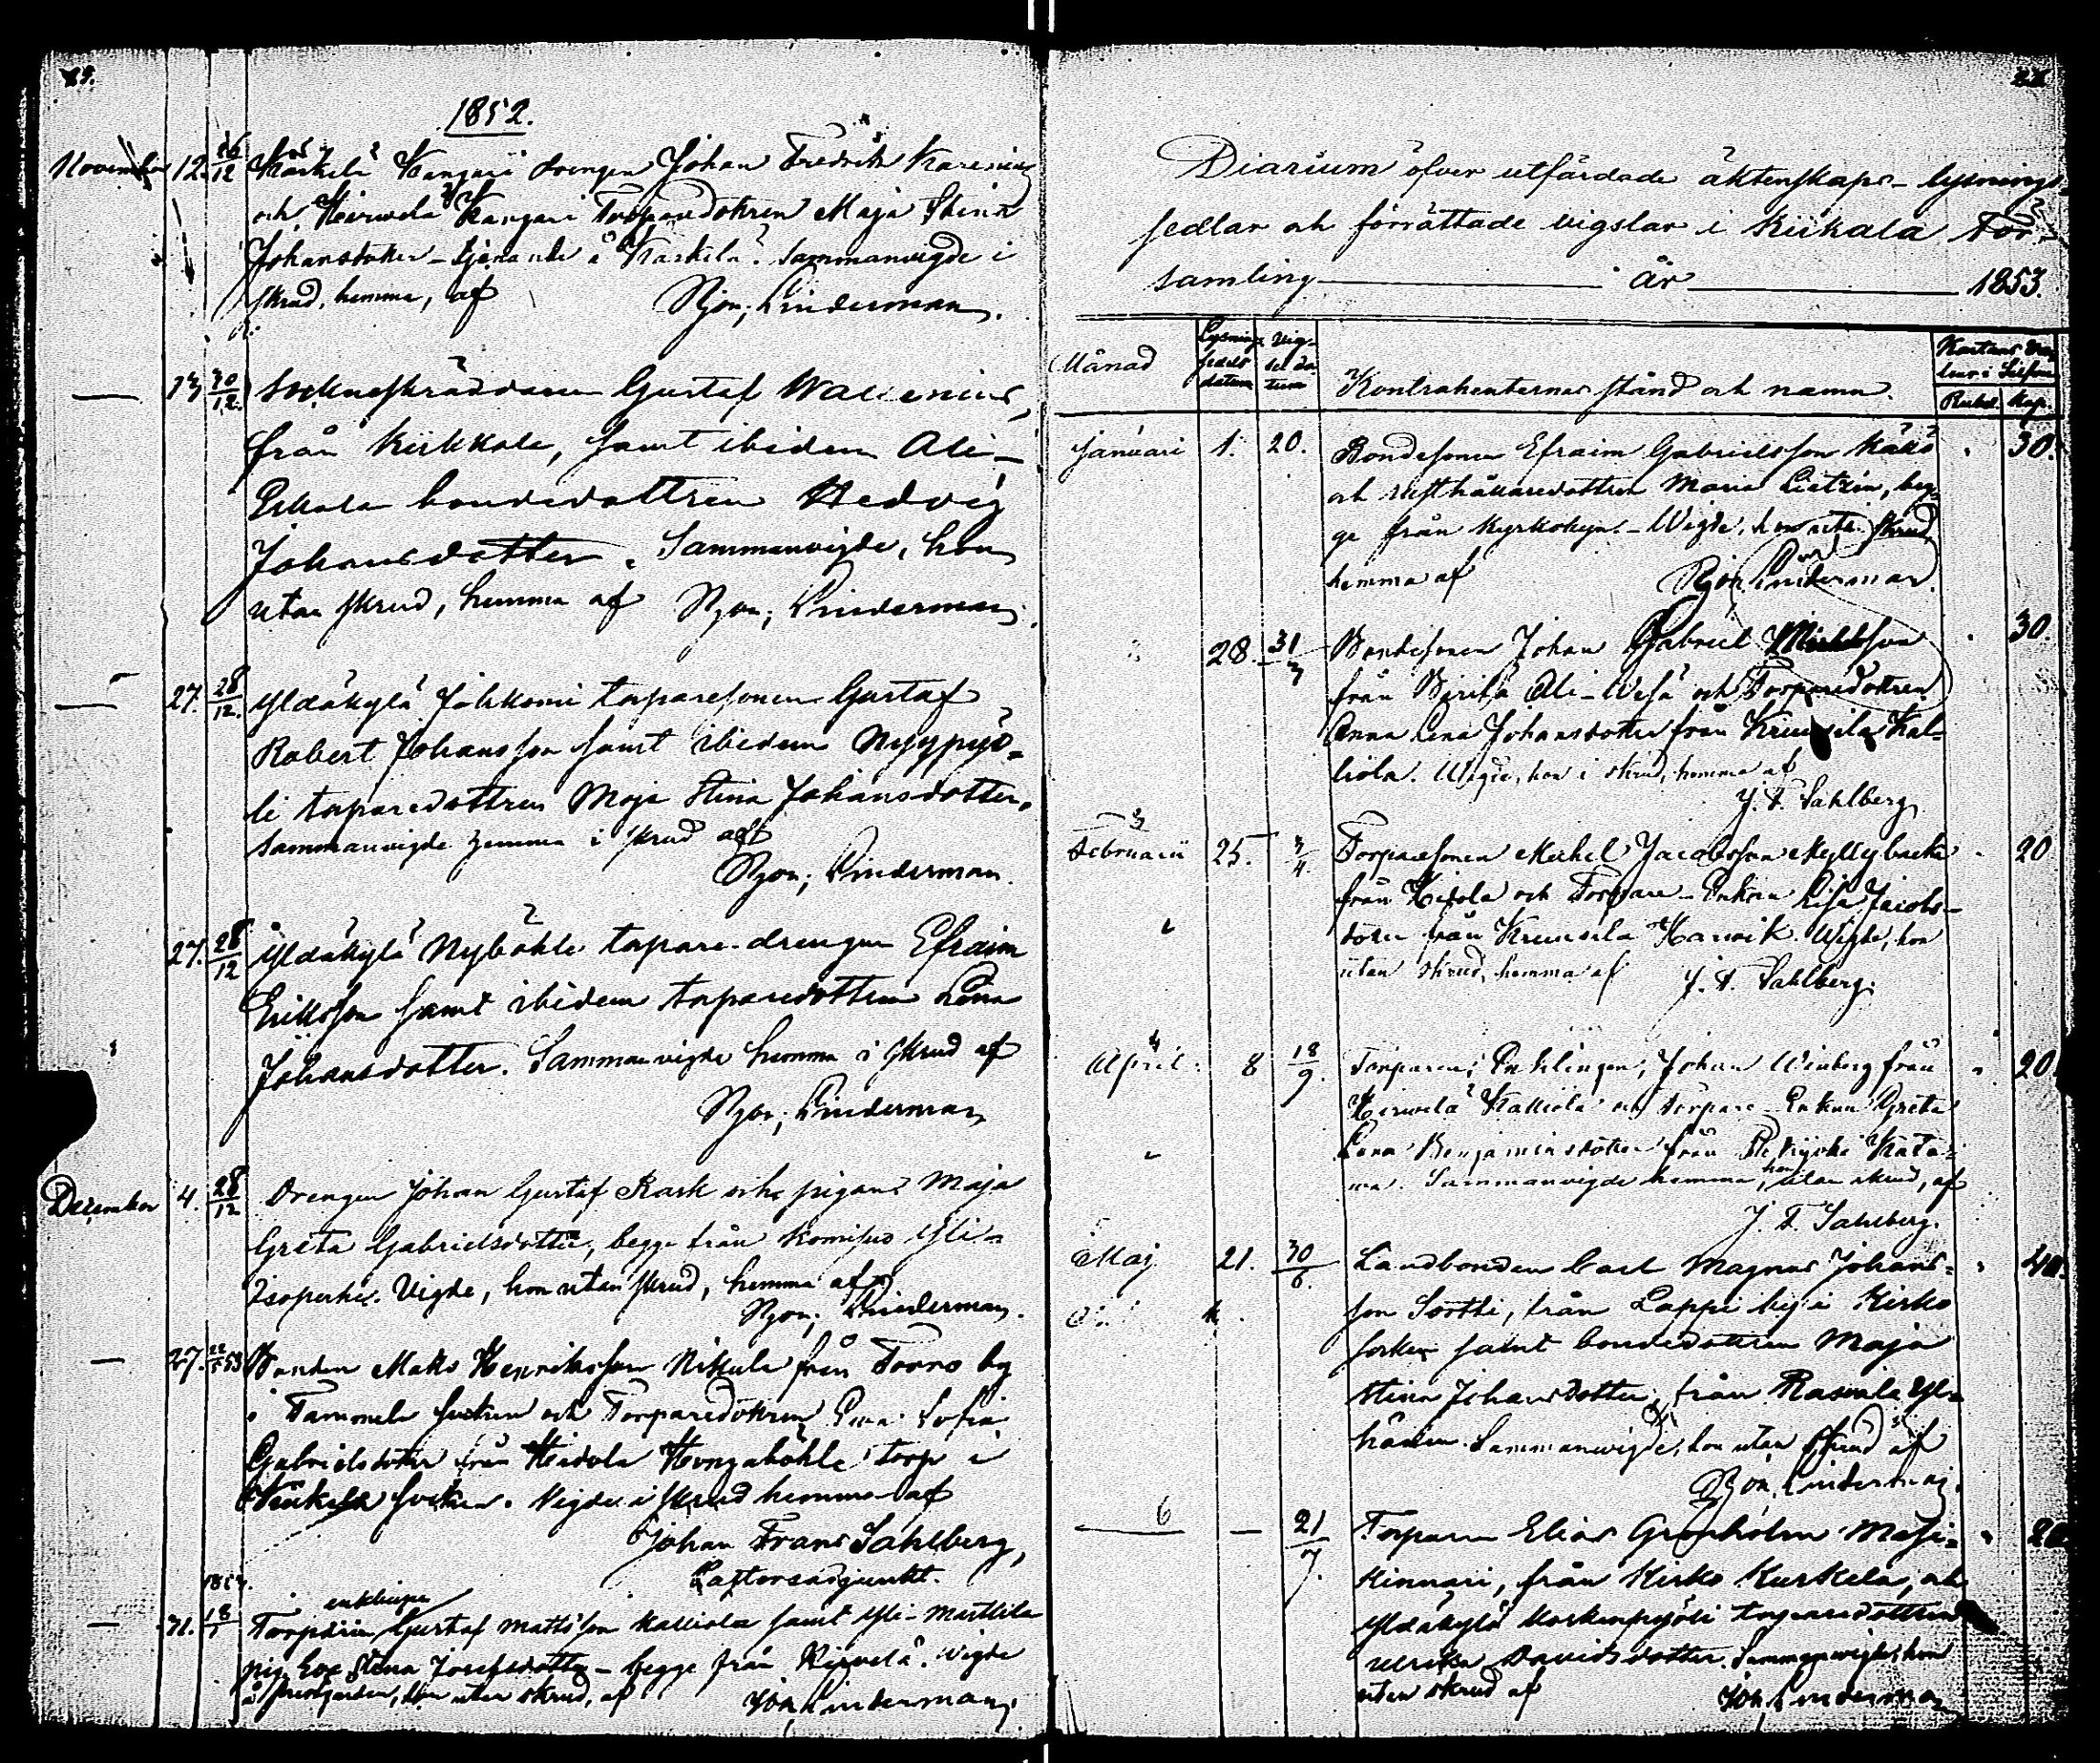 1852.
November 12. 26/12 Kärkelä Kangari drengen Johan Fredrik Karenius
och Hirvelä Kangari Torparedotren Maja Stina
Johansdotter - tjenande å Karkela. Sammanvigde i
skrud, hemma, af Bjon; Linderman.
13 30/12. Socknesträddaren Gustaf Wallenius,
från Kirkkola, samt ibidem Ali-
Eskola bondedottren Hedvig
Johansdotter. Sammanvigde, hon
utan skrud, hemma af Bjon; Linderman.
27. 28/12. Yldäkylä torparesonen Gustaf
Robert Johansson samt ibidem Nygpyö-
li torparedottren Maja Stina Johansdotter.
Sammanvigde hemma i skrud af
Bjon; Linderman.
27. 28/12 Yldäkylä Nyböhle torpare-drengen Efraim
Eriksson samt ibidem torparedottren Lena
Johansdotter. Sammanvigde hemma i skrud af
Bjon; Linderman
December 4. 28/12 Drengen Johan Gustaf Rask och pigan Maja
Greta Gabrielsdotter, begge från Komisuo Yli-
Isoperhe. Vigde, hon utan skrud, hemma af
Bjon; Linderman.
27. 53 Bonden Matts Henriksson Nikula från Torro by
i Tammela socken och Torparedotren Eva Sofia
Gabrielsdotter från Hidola Hongaböhle torp i
Kiikala socken. Vigde i skrud hemma af
Johan Frans Sahlberg,
Pastorsadjunkt.
31. 18/1 enklinge
Torparen Gustaf Mattsson Kalliola samt Yli-Mattila
pig. Eva Stina Josefsdotter - begge från Hirvelä. Vigde
å prestgården, hon utan skrud, af Bjon Linderman;
Diarium öfver utfärdade äktenskaps-lysnings-
sedlar och förrättade vigslar i Kiikala För-
samling år 1853.
Månad Lysnings sedels datum Vig- sel da- tum Kontrahenternas stånd och namn. Rubel. Kop.
Januari 1. 20. Bondesonen Efraim Gabrielsson Käkö 30.
och rusthållaredottren Maria Lietzén, beg-
ge från Kyrkobyn. - Vigde, hon utan skrud,
hemma af Bjon Linderman.
28. 31/3 Bondesonen Johan Gabriel 30.
från Ali-Wesä och Torparedotren
Anna Lena Johansdotter från Kruusila Kal-
liola. Vigde, hon i skrud, hemma af
J. F. Sahlberg
Februarii 25. 3/4. Torparesonen Michel Jacobsson Myllybacka 20
från Hidola och Torpare-Enkan Lisa Jacobs-
doter från Kruusila Vigde, hon
utan skrud, hemma af J. F. Sahlberg.
April. 8 18/9. Torparen, Enklingen, Johan Winberg från 20
Hirvelä Kalliola och Torpare-Enkan Greta
Lena Benjaminsdotter från
Sammanvigde hemma, hon utan skrud, af
J. F. Sahlberg.
Maj 21. 30/6. Landbonden Carl Magnus Johans- 40.
son Sortti, från Lappi by i Kisko
socken samt bondedottren Maja
Stina Johansdotter, från Rasvala Yli-
Sammanvigde, hon utan skrud af
Bjon, Linderman.
6 — 21/7. Torparen Elias Grönholm 20
från Kisko Kurkela, och
Yldäkylä torparedottren
Ulrika Davidsdotter. Sammanvigde, hon
utan skrud af Bjon Linderman